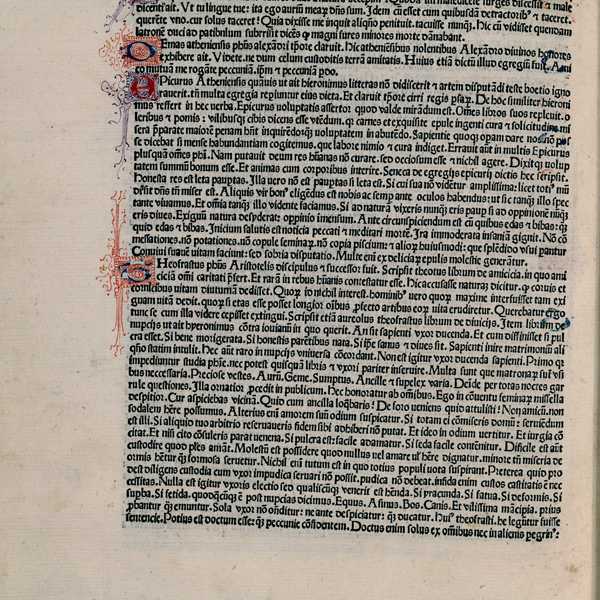 dicentiāt ut in lingue tue: ita ego auriū meaꝝ dn̄s sum. Idem cū esset cum quibusdā detractorib⁹ ⁊ taceret.
querēte vno. cur solus taceret? Quia dixisse me inquit aliqn̄ penituit. tacuisse nunqꝫ. Hic cū vidisset quendam
latronē duci ad patibulum subrisit dicēs qꝫ magni fures minores morte dānabant.
Demas atheniensis phūs alexādri tꝑore claruit. Hic atheniēsibus nolentibus Alexādro diuinos honores
exhibere ait. Videte. ne dum celum custoditis terrā amittatis. Huius etiā dictū illud egregiū fuit. Ami
co mutuā me rogāte peccuniā. ip̄m ⁊ peccuniā ꝑdo.
Epicurus Atheniensis quāuis ut ait hieronimus litteras nō didiscerit ⁊ artem disputādi teste boetio igno
rauerit. tn̄ multa egregia reꝑiuntur eius dicta. Et claruit tꝑore cirri regis psaꝝ. De hoc similiter hieroni
mus refert in hec verba. Epicurus voluptatis assertor quod valde mirandum est. Omēs libros suos repleuit. o
leribus ⁊ pomis: vilibusqꝫ cibis dicens esse vtēdum. qꝛ carnes et exquisite epule ingenti cura ⁊ solicitudine mi
sera ꝑparate maiorē penam hn̄t inquirēdoqꝫ voluptatem in abutēdo. Sapientie quoqꝫ opam dare nos nō pos
se dicebat si mense habundantiam cogitemus. que labore nimio ⁊ cura indiget. Errauit aūt in multis Epicurus
plusquā omēs phī. Nam putauit deum res hūanas nō curare. sed occiosum esse ⁊ nichil agere. Dixitqꝫ volup
tatem summū bonum esse. Et animas cum corporibus interire. Seneca de egregijs epicurij dictis hec scripsit.
Honesta res est leta paupertas. Illa uero nō est pauptas si leta est. Si cui sua nō vidētur amplissima: licet tot⁹ mū
di sit dn̄s tn̄ miser est. Aliquis vir bon⁹ eligēdus est nobis ac semp ante oculos habendus: ut sic tanqꝫ illo spec
tante viuamus. Et omīa tanqꝫ illo vidente faciamus. Si ad naturā vixeris nunqꝫ eris paup si ad oppinionē nūqꝫ
eris diues. Exiguū natura desyderat: oppinio imensum. Ante circunspiciendum est cū quibus edas ⁊ bibas: qꝫ
quid edas ⁊ bibas. Inicium salutis est noticia peccati ⁊ meditari mortē. Ira immoderata insaniā gignit. Nō cō
messationes. nō potationes. nō copule feminaꝝ. nō copia pisciū: ⁊ alioꝝ huiusmodi: que splēdido vsui pantur
Conuiui suauē uitam faciunt: sed sobria disputatio. Multe enī ex delicijs epulis molestie generātur.
Theofrastus phūs Aristotelis discipulus ⁊ successor fuit. Scripsit theofratus librum de amicicia. in quo ami
ciciā omī caritati ꝓfert. Et rarā in rebus hūanis contestatur esse. Hic accusasse naturā dicitur. qꝫ coruis et
cornicibus vitam diuturnā dedisset. Quoꝝ io nichil interest. hominib⁹ uero quoꝝ maxime interfuisset tam exi
guam uitā dedit. quoꝝ si etas esse posset longior oībus ꝓfecto artibus eoꝝ uita erudiretur. Querebatur ergo
tunc se cum illa videre cepisset extingui. Scripsit etiā aureolus theofrastus librum de diuicijs. Item librum de
nupcijs ut ait hyeronimus cōtra iouianū in quo querit. An sit sapienti vxor ducenda. Et cum diffinisset si pul
cra esset. Si bene morigerata. Si honestis parētibus nata. Si ip̄e sanus ⁊ diues sit. Sapienti inire matrimoniū ali
qn̄o statim intulit. Hec aūt raro in nupcijs vniuersa cōcordant. Non est igitur vxor ducenda sapienti. Primo qꝫ
impediuntur studia phīe. nec potest quisqꝫ libris ⁊ vxori pariter inseruire. Multa sunt que matronaꝝ sui vsi
bus neccessaria. Preciose vestes. Aurū. Geme. Sumptus. Ancille ⁊ supelex varia. Deīde per totas noctes gar
rule questiones. Illa ornatior ꝓcedit in publicum. Hec honoratur ab omībus. Ego in cōuentu feminaꝝ misella
despicior. Cur aspiciebas vicinā. Quid cum ancilla loq̄baris? De foro veniens quid attulisti? Non amicū. non
sodalem hr̄e possumus. Alterius enī amorem suū odium suspicatur. Si totam ei cōmiseris domū: seruiēdum
est illi. Si aliquid tuo arbitrio reseruaueris fidem sibi adhiberi nō putat. Et ideo in odium uertitur. Et iurgia cō
citat. Et nisi cito cōsuleris parat venena. Si pulcra est: facile adamatur. Si feda facile concupiscit. Difficile est aūt
custodire quod ples amāt. Molestū est possidere quod nullus uel amare uel hr̄e dignatur. minore tn̄ miseria de
ormis hētur qꝫ formosa seruetur. Nichil enī tutum est in quo totius populi uota suspirant. Preterea quid pro
dest diligens custodia cum vxor impudica seruari nō possit. pudica nō debeat. infida enim custos castitatis ē nec
cessitas. Nulla est igitur vxoris electio sed qualiscūqꝫ venerit est hn̄da. Si iracunda. Si fatua. Si deformis. Si
supba. Si fetida. quodqūcqꝫ ē post nupcias dicimus. Equus. Asinus. Bos. Canis. Et vilissima mācipia. prius
ꝓbantur qꝫ emuntur. Sola vxor nō ondītur: ne ante despiciatur: qꝫ ducatur. Hui⁹ theofrasti. he legūtur fuisse
sentencie. Potius est doctum esse: qꝫ peccunie cōfidentem. Doctus enim solus ex omībus nec in alienis pegrin⁹: